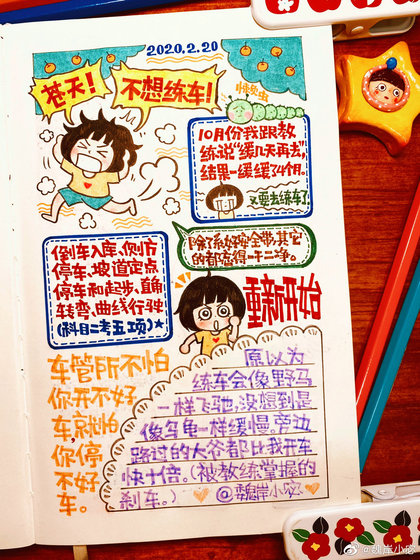 2020.2.20
苍天!
不想练车!
10月份我跟教
练说“缓几天再去”,
结果一缓缓了4个月。
又要去练车了
除了系好安全带,其它
的都忘得一干二净。
倒车入库、侧方
停车、坡道定点
停车和起步、直角
转弯、曲线行驶
(科目二考五项)★
重新开始
车管所不怕
你开不好
车,就怕
你停
不好
车。
原以为
练车会像野马
一样飞驰,没想到是
像乌龟一样缓慢。旁边
路过的大爷都比我开车
快十倍。(被教练掌握的
刹车。)